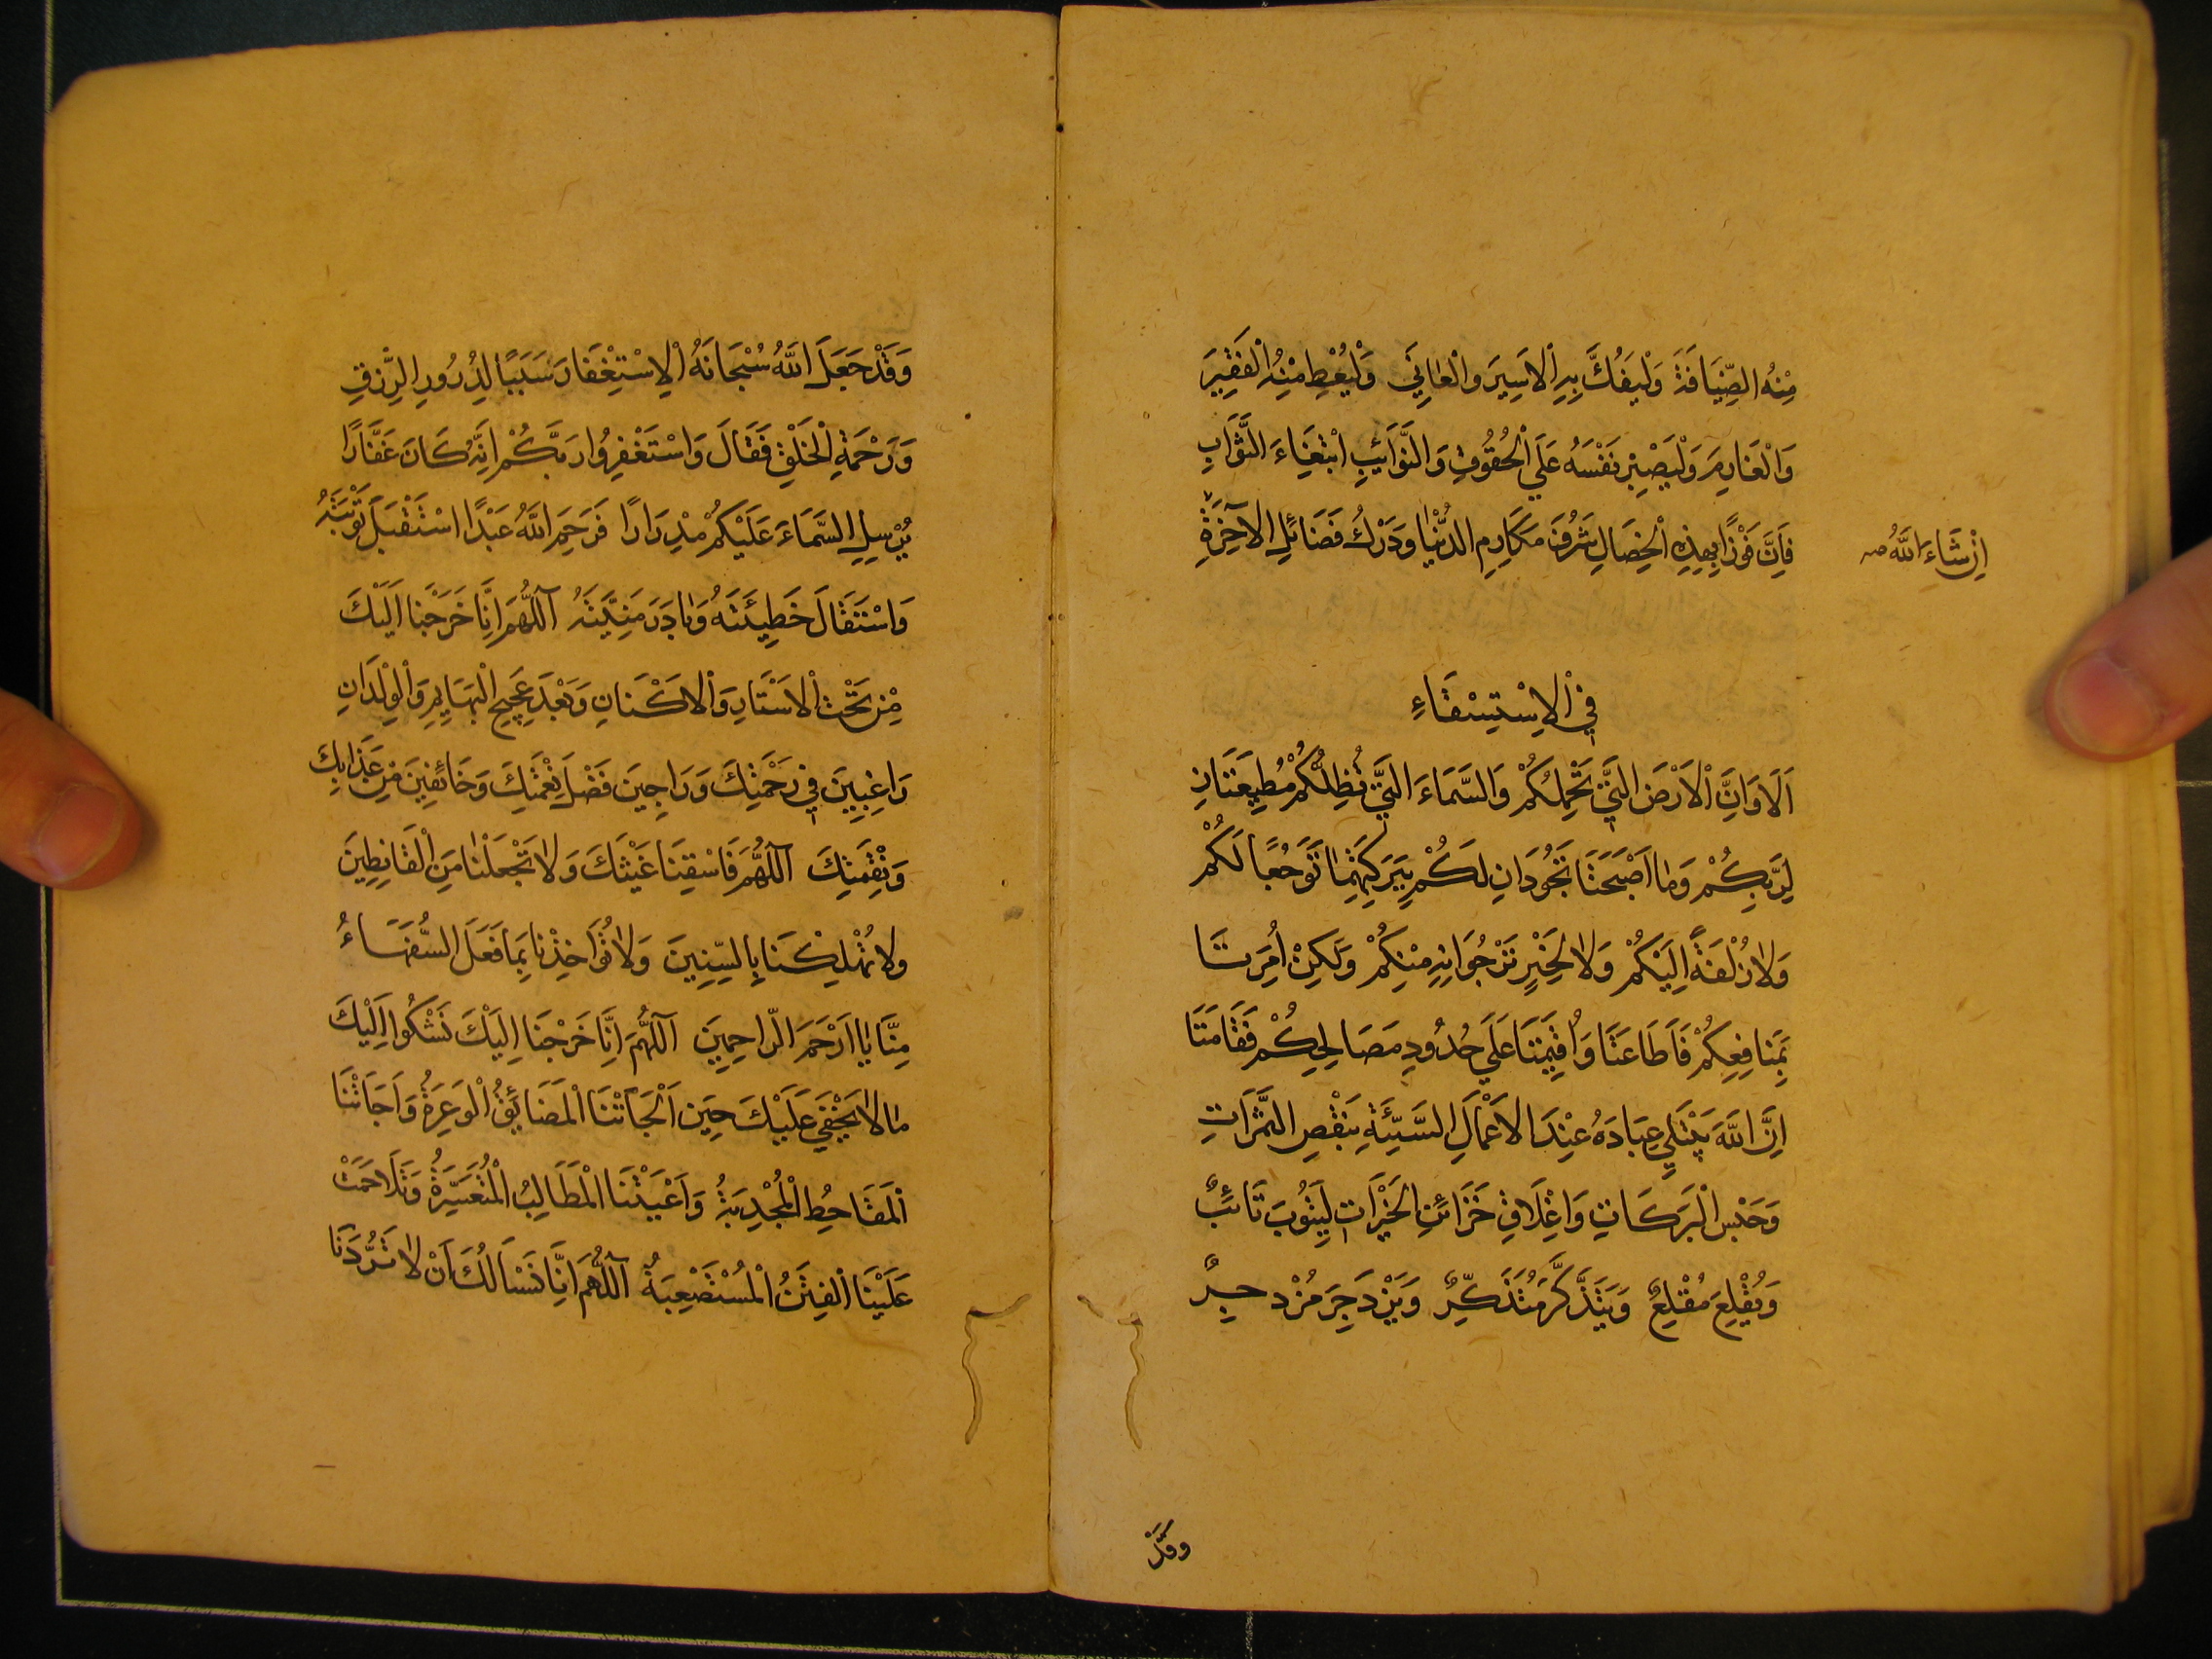 مِنْهُ الضِّيَافَةَ وَلْيَفُكَّ بِهِ الْاَسِيرَ وَالْعَانِيَ وَلْيُعْطِ مِنْهُ الْفَقِيرَ
وَالْغَارِمَ وَلْيَصْبِرْ نَفْسَهُ عَلَى الْحُقُوقِ وَالنَّوَائِبِ ابْتِغَاءَ الثَّوَابِ
فَاِنَّ فَوْزًا بِهٰذِهِ الْخِصَالِ شَرَفُ مَكَارِمِ الدُّنْيَا وَدَرْكُ فَضَائِلِ الْآخِرَةِ
اِنْ شَاءَ اللّٰهُ صه
فِي الْاِسْتِسْقَاءِ
اَلَا وَاِنَّ الْاَرْضَ الَّتِي تَحْمِلُكُمْ وَالسَّمَاءَ الَّتِي تُظِلُّكُمْ مُطِيعَتَانِ
لِرَبِّكُمْ وَمَا اَصْبَحَتَا تَجُودَانِ لَكُمْ بِبَرَكَتِهِمَا تَوَجُّعًا لَكُمْ
وَلَا زُلْفَةً اِلَيْكُمْ وَلَا لِخَيْرٍ تَرْجُوَانِهِ مِنْكُمْ وَلٰكِنْ اُمِرَتَا
بِمَنَافِعِكُمْ فَاَطَاعَتَا وَاُقِيمَتَا عَلَى حُدُودِ مَصَالِحِكُمْ فَقَامَتَا
اِنَّ اللّٰهَ يَبْتَلِي عِبَادَهُ عِنْدَ الْاَعْمَالِ السَّيِّئَةِ بِنَقْصِ الثَّمَرَاتِ
وَحَبْسِ الْبَرَكَاتِ وَاِغْلَاقِ خَزَائِنِ الْخَيْرَاتِ لِيَتُوبَ تَائِبٌ
وَيُقْلِعَ مُقْلِعٌ وَيَتَذَكَّرَ مُتَذَكِّرٌ وَيَزْدَجِرَ مُزْدَجِرٌ
وَقَدْ
وَقَدْ جَعَلَ اللّٰهُ سُبْحَانَهُ الْاِسْتِغْفَارَ سَبَبًا لِدُرُورِ الرِّزْقِ
وَرَحْمَةِ الْخَلْقِ فَقَالَ وَاسْتَغْفِرُوا رَبَّكُمْ اِنَّهُ كَانَ غَفَّارًا
يُرْسِلِ السَّمَاءَ عَلَيْكُمْ مِدْرَارًا فَرَحِمَ اللّٰهُ عَبْدًا اسْتَقْبَلَ تَوْبَتَهُ
وَاسْتَقَالَ خَطِيئَتَهُ وَبَادَرَ مَنِيَّتَهُ اَللّٰهُمَّ اِنَّا خَرَجْنَا اِلَيْكَ
مِنْ تَحْتِ الْاَسْتَارِ وَالْاَكْنَانِ وَبَعْدَ عَجِيجِ الْبَهَائِمِ وَالْوِلْدَانِ
رَاغِبِينَ فِي رَحْمَتِكَ وَرَاجِينَ فَضْلَ نِعْمَتِكَ وَخَائِفِينَ مِنْ عَذَابِكَ
وَنِقْمَتِكَ اَللّٰهُمَّ فَاسْقِنَا غَيْثَكَ وَلَا تَجْعَلْنَا مِنَ الْقَانِطِينَ
وَلَا تُهْلِكْنَا بِالسِّنِينَ وَلَا تُؤَاخِذْنَا بِمَا فَعَلَ السُّفَهَاءُ
مِنَّا يَا اَرْحَمَ الرَّاحِمِينَ اَللّٰهُمَّ اِنَّا خَرَجْنَا اِلَيْكَ نَشْكُوا اِلَيْكَ
مَا لَا يَخْفَى عَلَيْكَ حِينَ اَلْجَاَتْنَا الْمَضَائِقُ الْوَعِرَةُ وَاَجَاءَتْنَا
الْمَقَاحِطُ الْمُجْدِبَةُ وَاَعْيَتْنَا الْمَطَالِبُ الْمُتَعَسِّرَةُ وَتَلَاحَمَتْ
عَلَيْنَا الْفِتَنُ الْمُسْتَصْعِبَةُ اَللّٰهُمَّ اِنَّا نَسْاَلُكَ اَنْ لَا تَرُدَّنَا